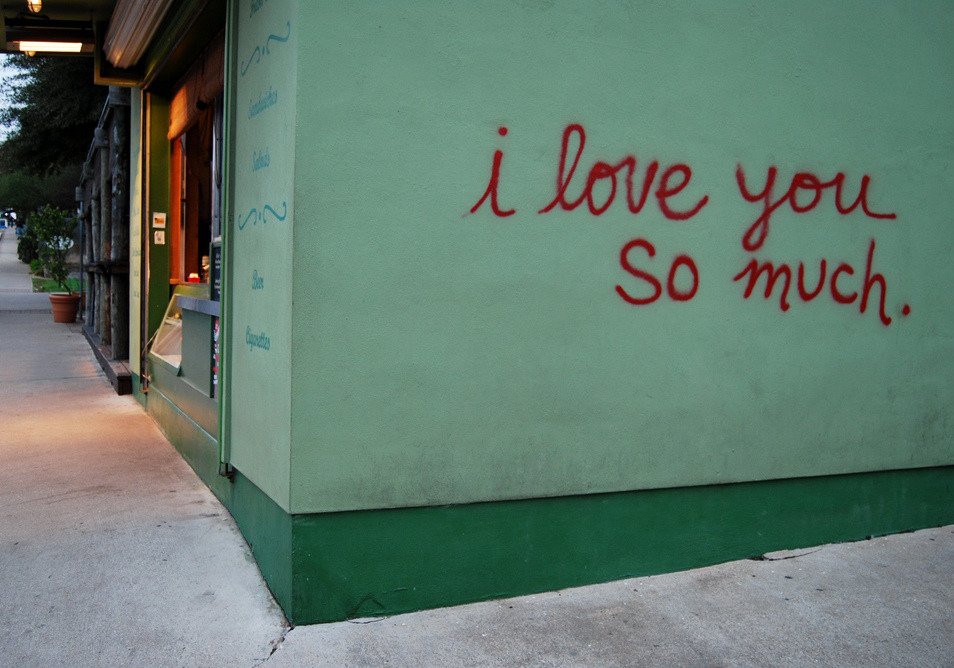 Sandwiches
Salads
Beer
Cigarettes
i love you
so much.